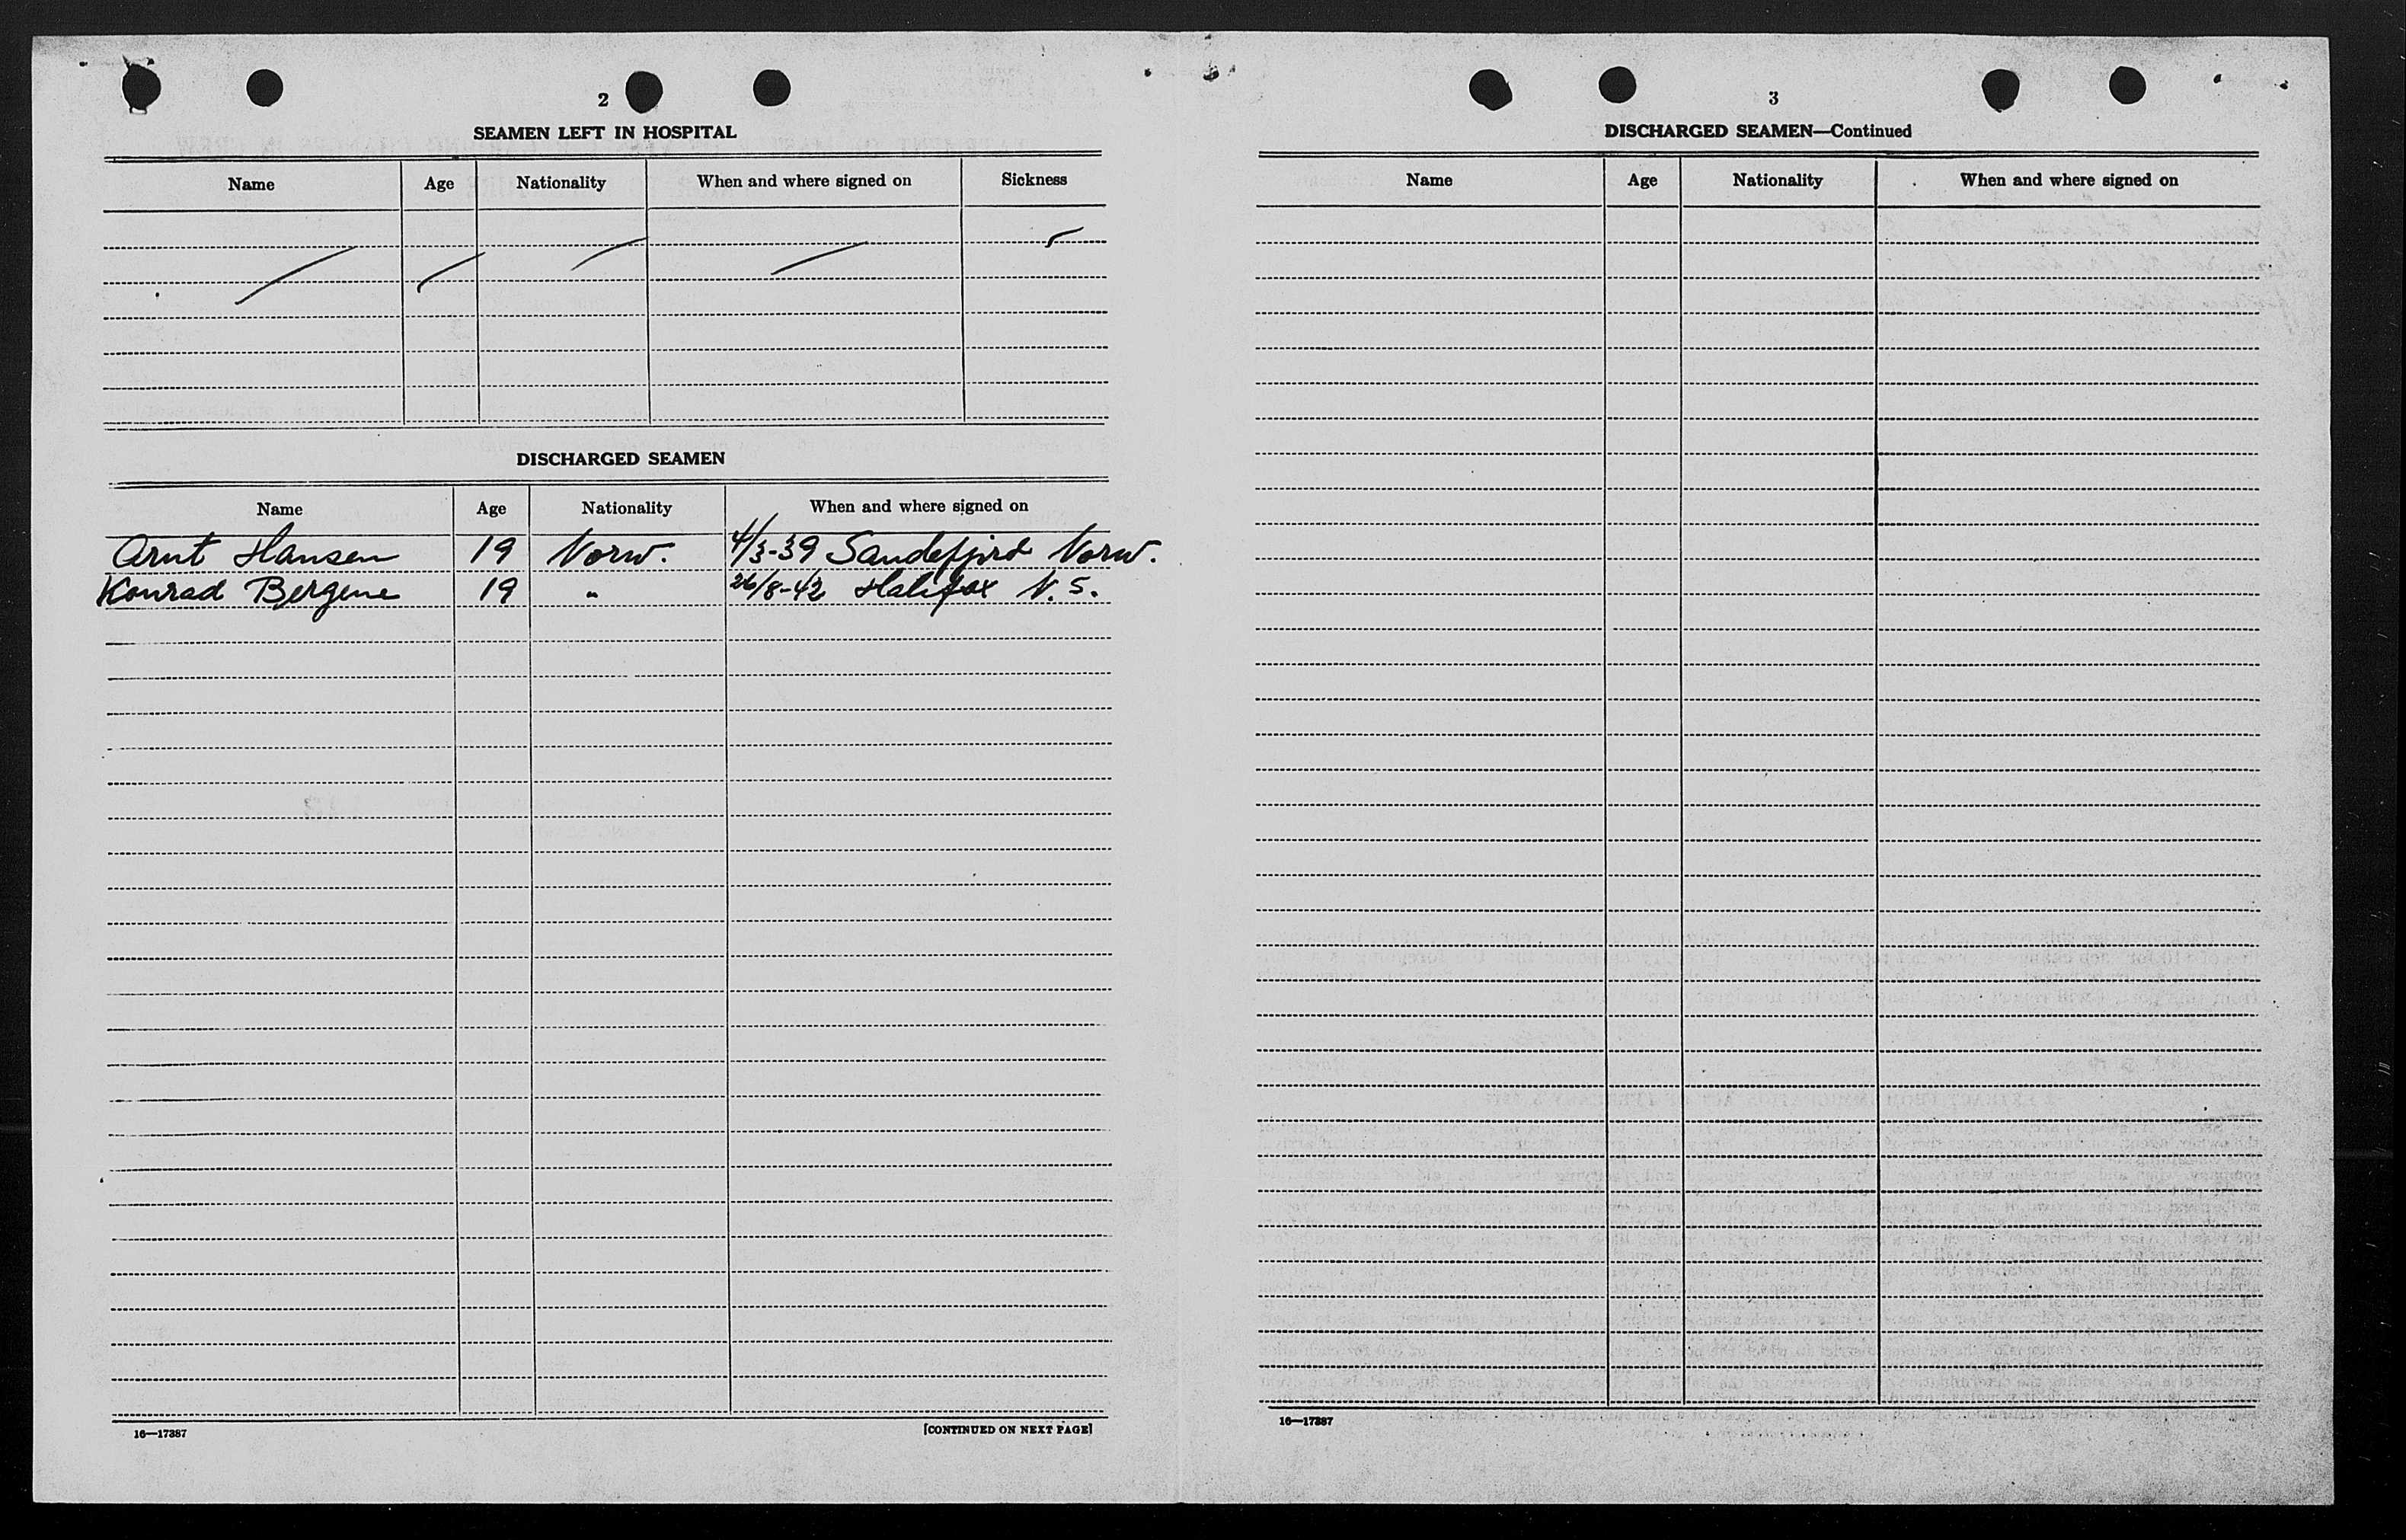 2
SEAMEN LEFT IN HOSPITAL
Name Age Nationality When and where signed on Sickness
DISCHARGED SEAMEN
Name Age Nationality When and where signed on
Arnt Hansen 19 Norw. 4/3-39 Sandefjord Norw.
Konrad Bergene 19 " 26/8-42 Halifax N. S.
16—17387 [CONTINUED ON NEXT PAGE]
3
DISCHARGED SEAMEN—Continued
Name Age Nationality When and where signed on
16—17387